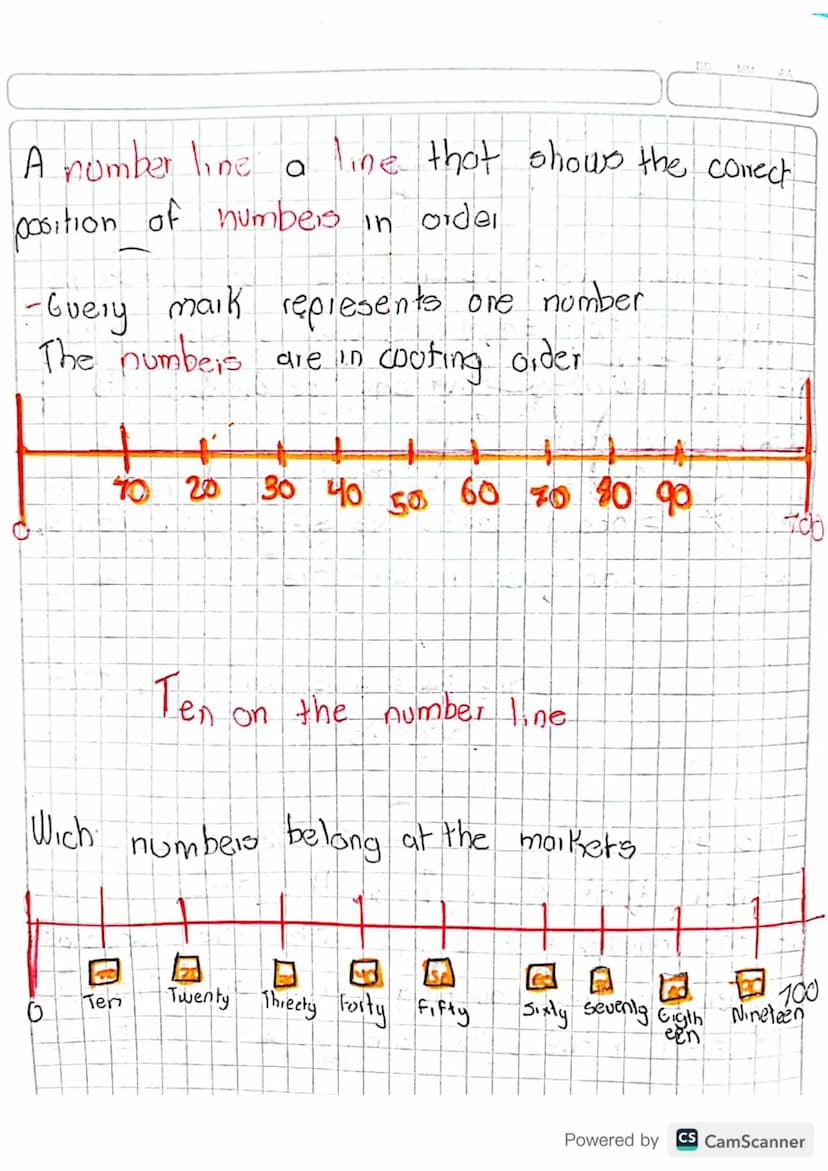 DD MM AA
A number line a line that shows the conect
position of numbers in order
-Every mark represents one number
The numbers are in cooting order
10 20 30 40 50 60 70 80 90
0 100
Ten on the number line
Wich numbers belong at the markers
10 20 30 40 50 60 70 80 90
0 Ten Twenty Thirecty Forty Fifty Sixty Seventy Eigth Nineteen 100
een
Powered by CS CamScanner